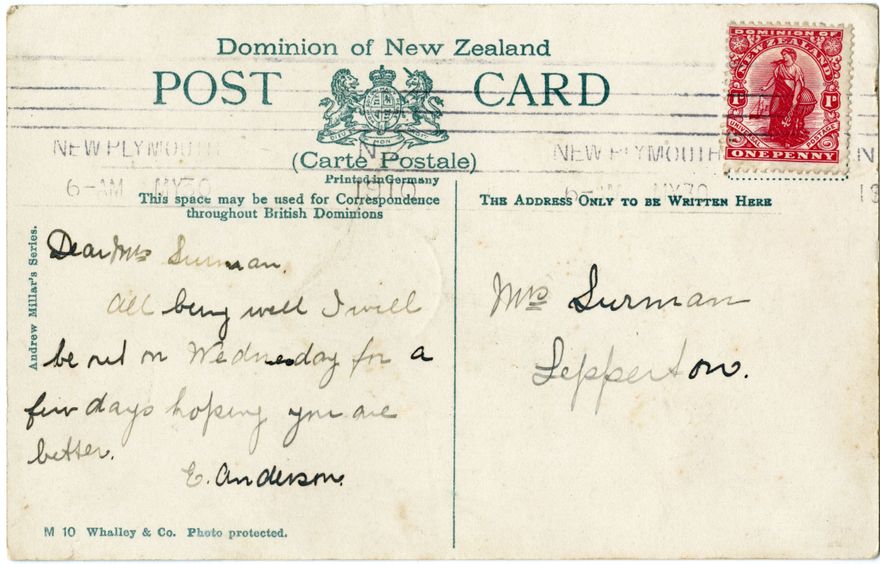 Dominion of New Zealand
POST CARD
(Carte Postale)
Printed in Germany
This space may be used for Correspondence
throughout British Dominions
THE ADDRESS ONLY TO BE WRITTEN HERE
DOMINION OF
NEW ZEALAND
1D 1D
UNIVERSAL POSTAGE
ONE PENNY
NEW PLYMOUTH N.Z
6-AM MY30 1910
NEW PLYMOUTH N
6-AM MY30 19
Andrew Millar's Series.
Dear Mrs Surman.
All being well I will
be out on Wednesday for a
few days hoping you are
better.
E. Anderson.
Mrs Surman
Lepperton.
M 10 Whalley & Co. Photo protected.